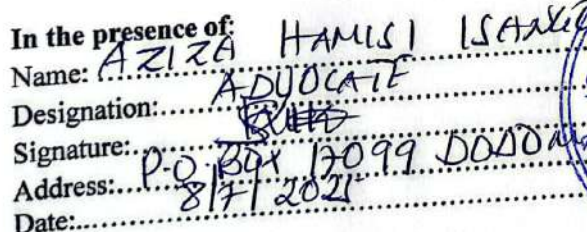 In the presence of:
Name: AZIZA HAMISI
Designation: ADVOCATE
Signature:
Address: P.O. BOX 17099 DODOMA
Date: 8/7/2025